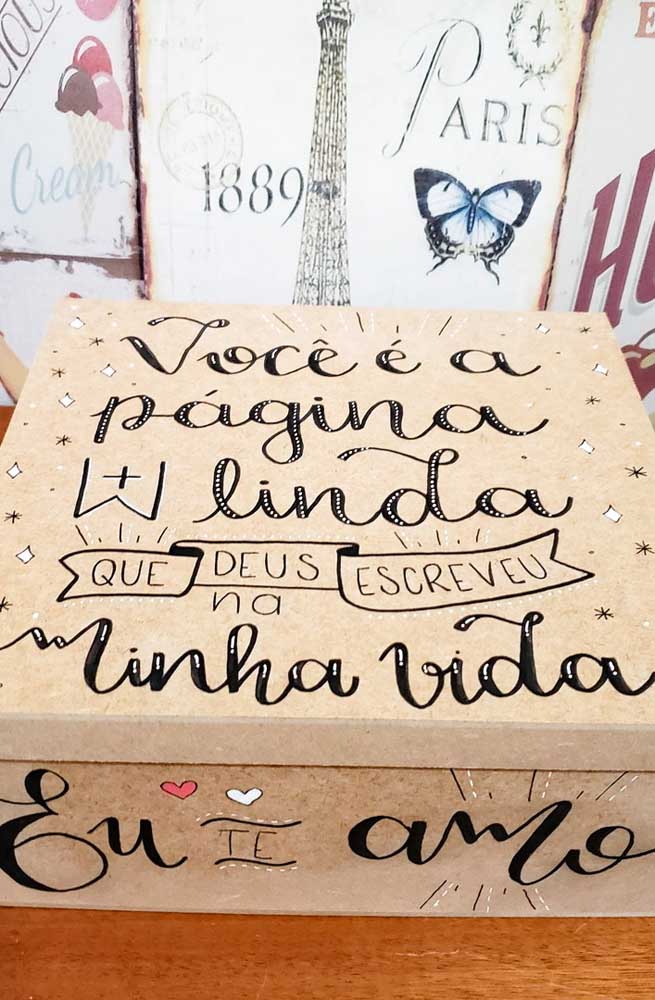 cious
Cream
PARIS
1889
Você é a
página
+ linda
QUE DEUS ESCREVEU
na
Minha vida
Eu TE amo